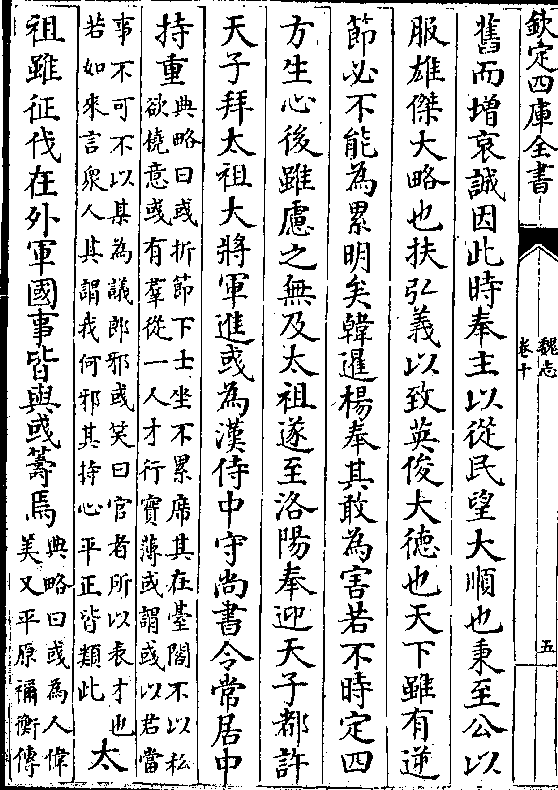 欽定四庫全書
魏志
卷十
五
舊而增哀誠因此時奉主以從民望大順也秉至公以
服雄傑大略也扶弘義以致英俊大德也天下雖有逆
節必不能為累明矣韓暹楊奉其敢為害若不時定四
方生心後雖慮之無及太祖遂至洛陽奉迎天子都許
天子拜太祖大將軍進彧為漢侍中守尚書令常居中
持重
典略曰彧折節下士坐不累席其在臺閣不以私
欲撓意彧有羣從一人才行實薄或謂彧以君當
事不可不以某為議郎邪彧笑曰官者所以表才也
若如來言衆人其謂我何邪其持心平正皆類此
太
祖雖征伐在外軍國事皆與彧籌焉
典略曰彧為人偉
美又平原禰衡傳